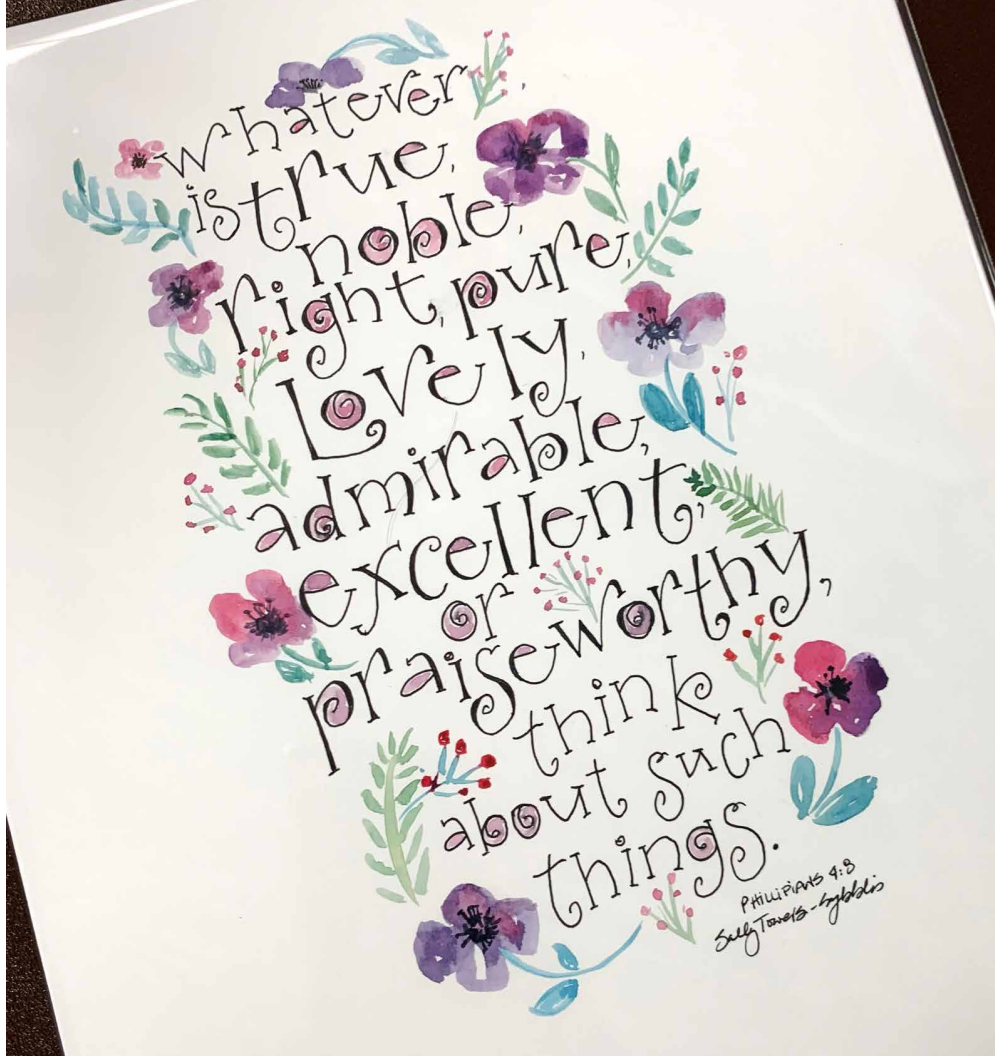 whatever
is true,
noble,
right, pure,
Lovely,
admirable,
excellent,
or
praiseworthy,
think
about such
things.
PHILLIPIANS 4:8
Sally Towers-Sybblis